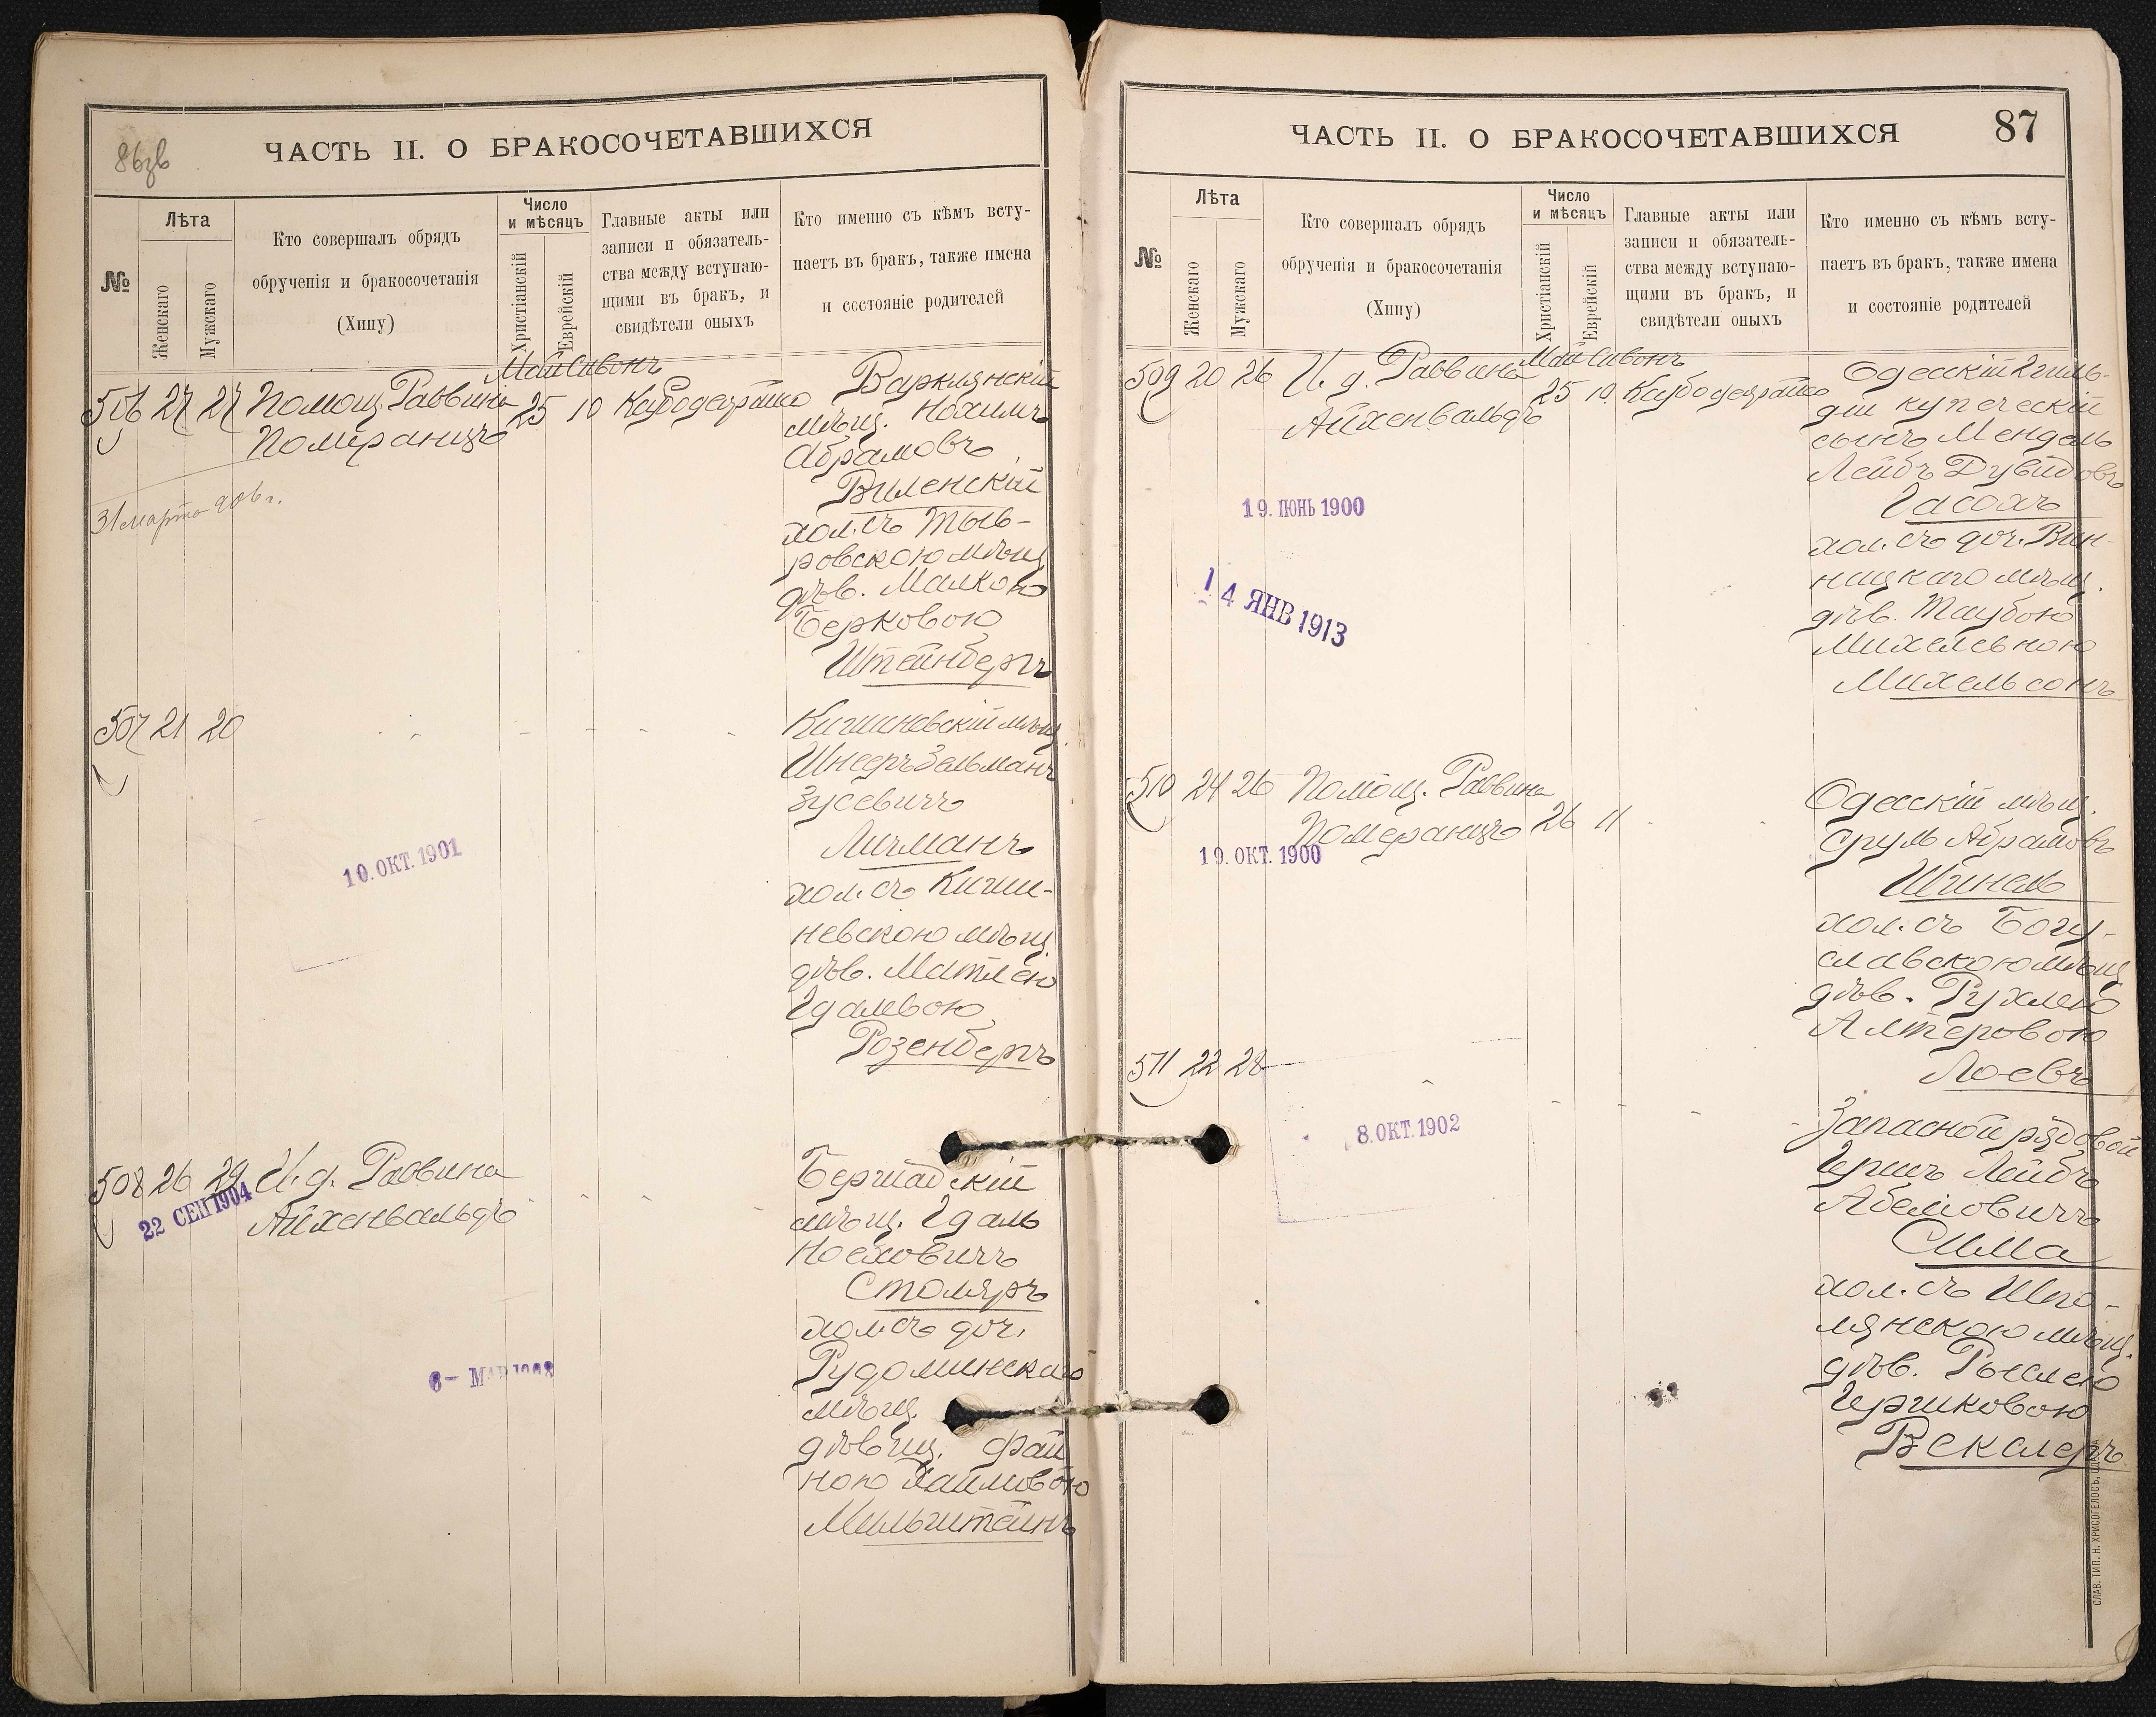 86зв
ЧАСТЬ II. О БРАКОСОЧЕТАВШИХСЯ
№
Лѣта
Женскаго
Мужскаго
Кто совершалъ обрядъ
обрученія и бракосочетанія
(Хипу)
Число
и мѣсяцъ
Христіанскій
Еврейскій
Главные акты или
записи и обязатель-
ства между вступаю-
щими въ бракъ, и
свидѣтели оныхъ
Кто именно съ кѣмъ всту-
паетъ въ бракъ, также имена
и состояніе родителей
Май Сивонъ
506 27 27 Помощ. Раввина 25 10
Померанцъ
31 марта 906 г.
Варклянскій
мѣщ. Нохимъ
Абрамовъ
Виленскій
хол. съ Тыв-
ровскою мѣщ
дѣв. Малкою
Берковою
Штейнбергъ
507 21 20
Кишиневскій мѣщ.
Шнееръ Зельманъ
Зусевичъ
Личманъ
хол. съ Киши-
невскою мѣщ.
дѣв. Матлею
Гдалевою
Розенбергъ
10. ОКТ. 1901
508 26 29 И. д. Раввина
Айхенвальдъ
22 СЕН 1904
Бершадскій
мѣщ. Гдаль
Ноеховичъ
Столяръ
хол. съ доч.
Рудоминскаго
мѣщ.
дѣвиц. Фай
ною Хаимовою
Мильштейнъ
6- МАР
ЧАСТЬ II. О БРАКОСОЧЕТАВШИХСЯ
87
№
Лѣта
Женскаго
Мужскаго
Кто совершалъ обрядъ
обрученія и бракосочетанія
(Хипу)
Число
и мѣсяцъ
Христіанскій
Еврейскій
Главные акты или
записи и обязатель-
ства между вступаю-
щими въ бракъ, и
свидѣтели оныхъ
Кто именно съ кѣмъ всту-
паетъ въ бракъ, также имена
и состояніе родителей
Май Сивонъ
509 20 26 И. д. Раввина 25 10
Айхенвальдъ
19. ІЮНЬ 1900
14 ЯНВ 1913
Одесскій 2 гиль-
діи купеческій
сынъ Мендель
Лейбъ Дувидовъ
Гасохъ
хол. съ доч. Вин-
ницкаго мѣщ.
дѣв. Таубою
Михелевною
Михельсонъ
510 24 26 Помощ. Раввина
Померанцъ 26 11
19. ОКТ. 1900
Одесскій мѣщ.
Сруль Абрамовъ
Шинель
хол. съ Богу-
славскою мѣщ
дѣв. Рухлею
Алтеровою
Лоевъ
511 22 28
8. ОКТ. 1902
Запасной рядовой
Гершъ Лейбъ
Абелиовичъ
Сима
хол. съ Шпо-
лянскою мѣщ.
дѣв. Рыслею
Гершковою
Векслеръ
СЛАВ. ТИП. Н. ХРИСОГЕЛОСЪ, ОДЕССА